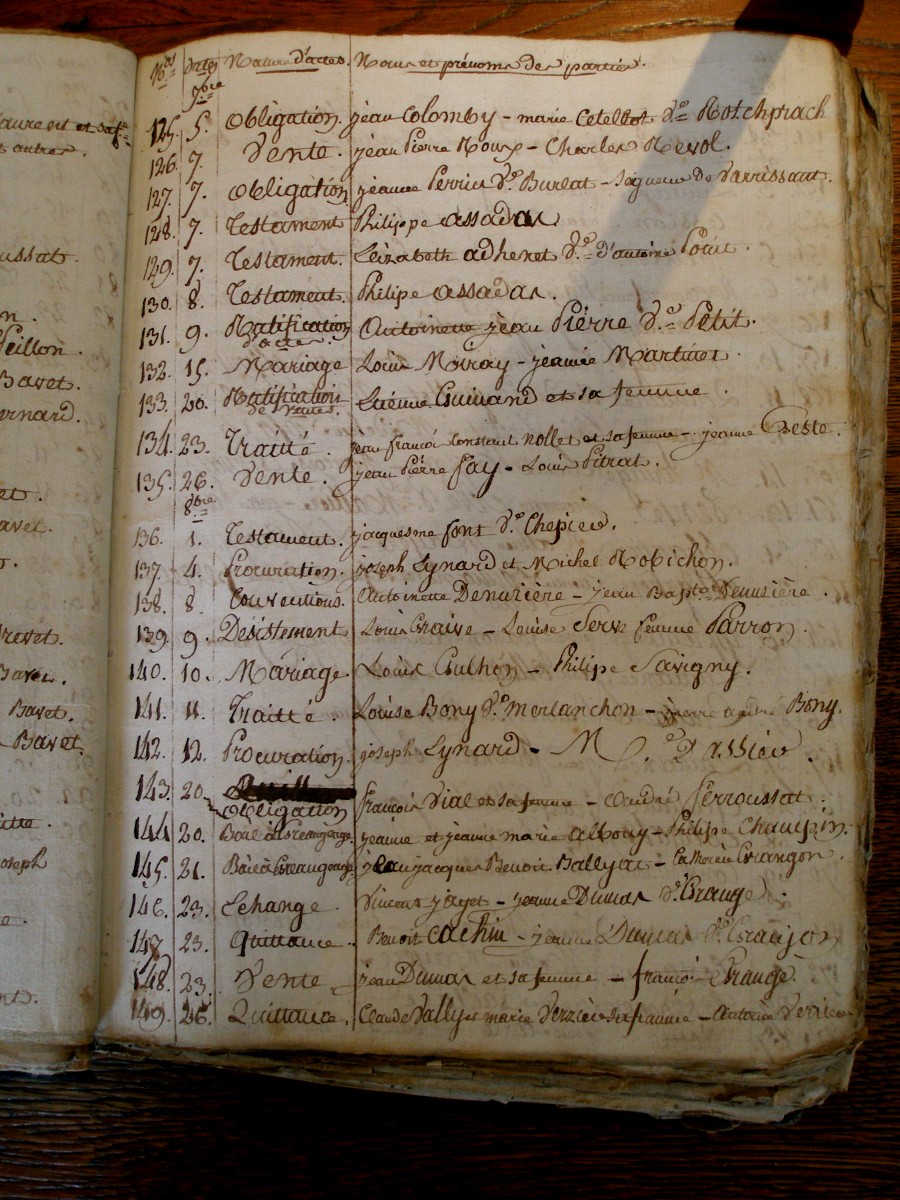 aurent et
et autres.
ussat.
n.
eillon.
Bavet.
ernard.
et.
avet.
revet.
Bavet.
Bavet.
Bavet.
oseph
N.os Dates Nature d'actes. Noms et prénoms des parties.
7.bre
125. 5. Obligation. jean Colomby - marie d.e
126. 7. Vente. jean Pierre Roux - Charles Revol.
127. 7. Obligation jeanne Perrin V.e Burlat - de
128. 7. Testament Philippe assadas
129. 7. Testament. Leizabeth adhenet V.e d'antoine Point.
130. 8. Testament. Philipe assadas.
131. 9. Ratification Antoinette jean Piérre V.e Petit.
d'actes.
132. 15. Mariage Louis Moiray - jeanne Martinet.
133. 20. Ratification Etiénne Guinand et sa femme.
de ventes.
134. 23. Traitté. jean françois constant Nollet et sa femme - jeanne Geste.
135. 26. Vente. jean Piérre fay - Louis Pitrat.
8.bre
136. 1. Testament. jacquesme font V.e Chepied.
137. 4. Procuration. joseph Lynard et Michel Robichon.
138. 8. Conventions. Antoinette Denuzière - jean Bapt.e Denuzière.
139. 9. Désistement Louis Craise - Louise Serve femme Parron.
140. 10. Mariage. Louis Coulhon - Philipe Savigny.
141. 11. Traitté. Louise Bony V.e Merlanchon - Bony.
142. 12. Procuration. joseph Lynard - M
143. 20. Obligation françois Vial et sa femme - André ferroussat.
144. 20. jeanne et jeanne marie albouy - Philipe Champin.
145. 21. jean jacques Benoit Ballyat - Catherine Grangon.
146. 23. Echange. Vincent jayet - jeanne Dumas V.e Grange.
147. 23. Quittance. Benoit Cachin - jeanne Dumas V.e
148. 23. Vente jean Dumas et sa femme - françois Grange.
149. 26. Quittance. Claude Vally et marie Verzier sa femme - Antoine